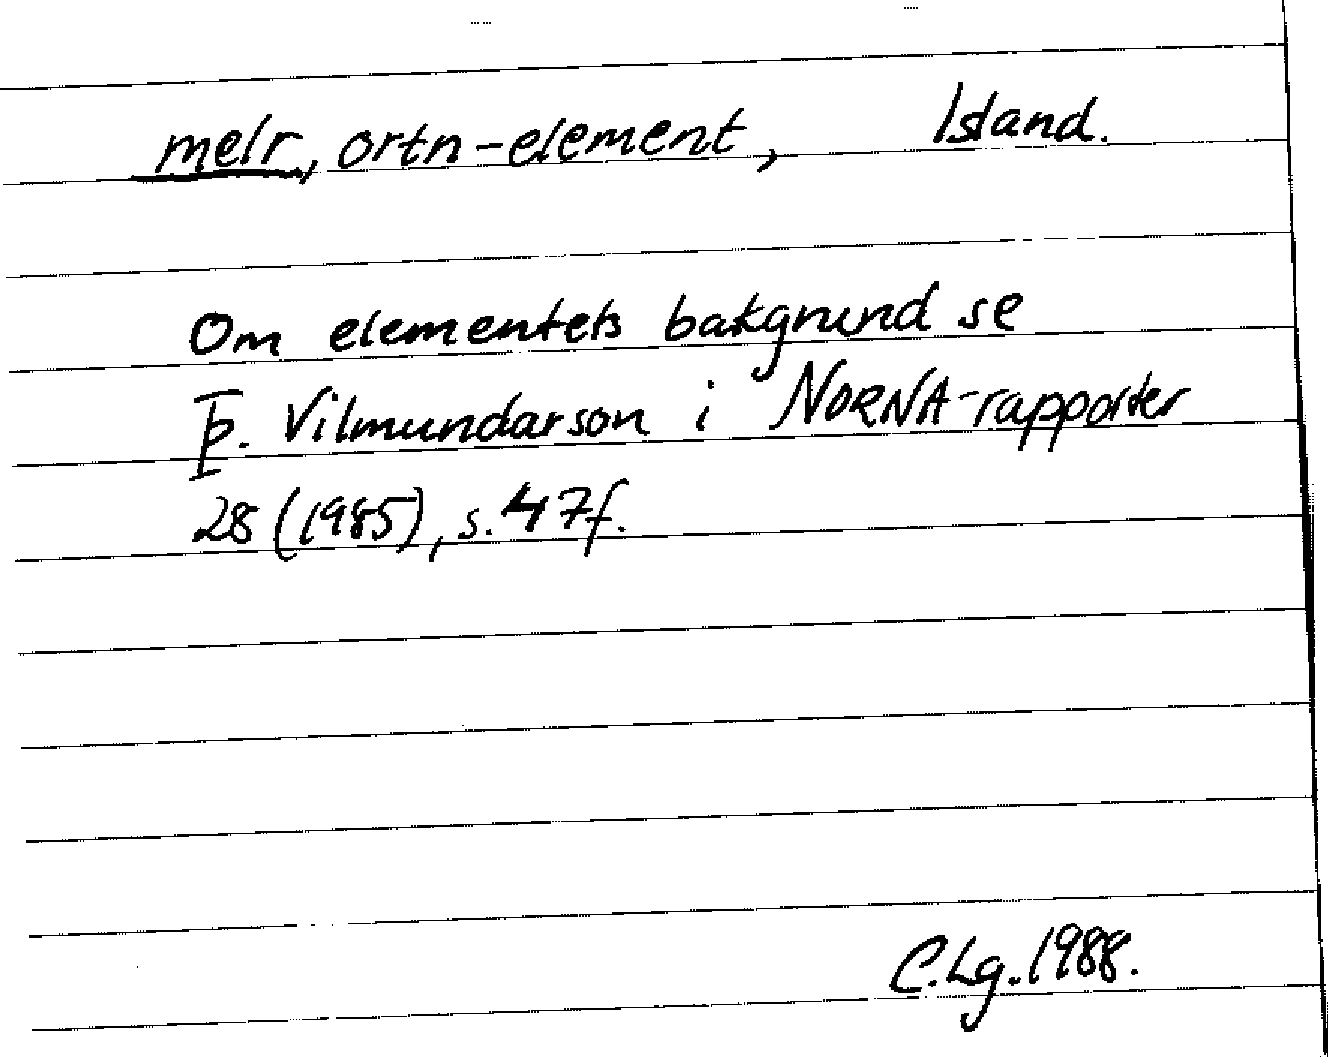 melr, ortn-element, Island.
Om elementets bakgrund se
Þ. Vilmundarson i NORNA-rapporter
28 (1985), s. 47f.
C.Lg. 1988.